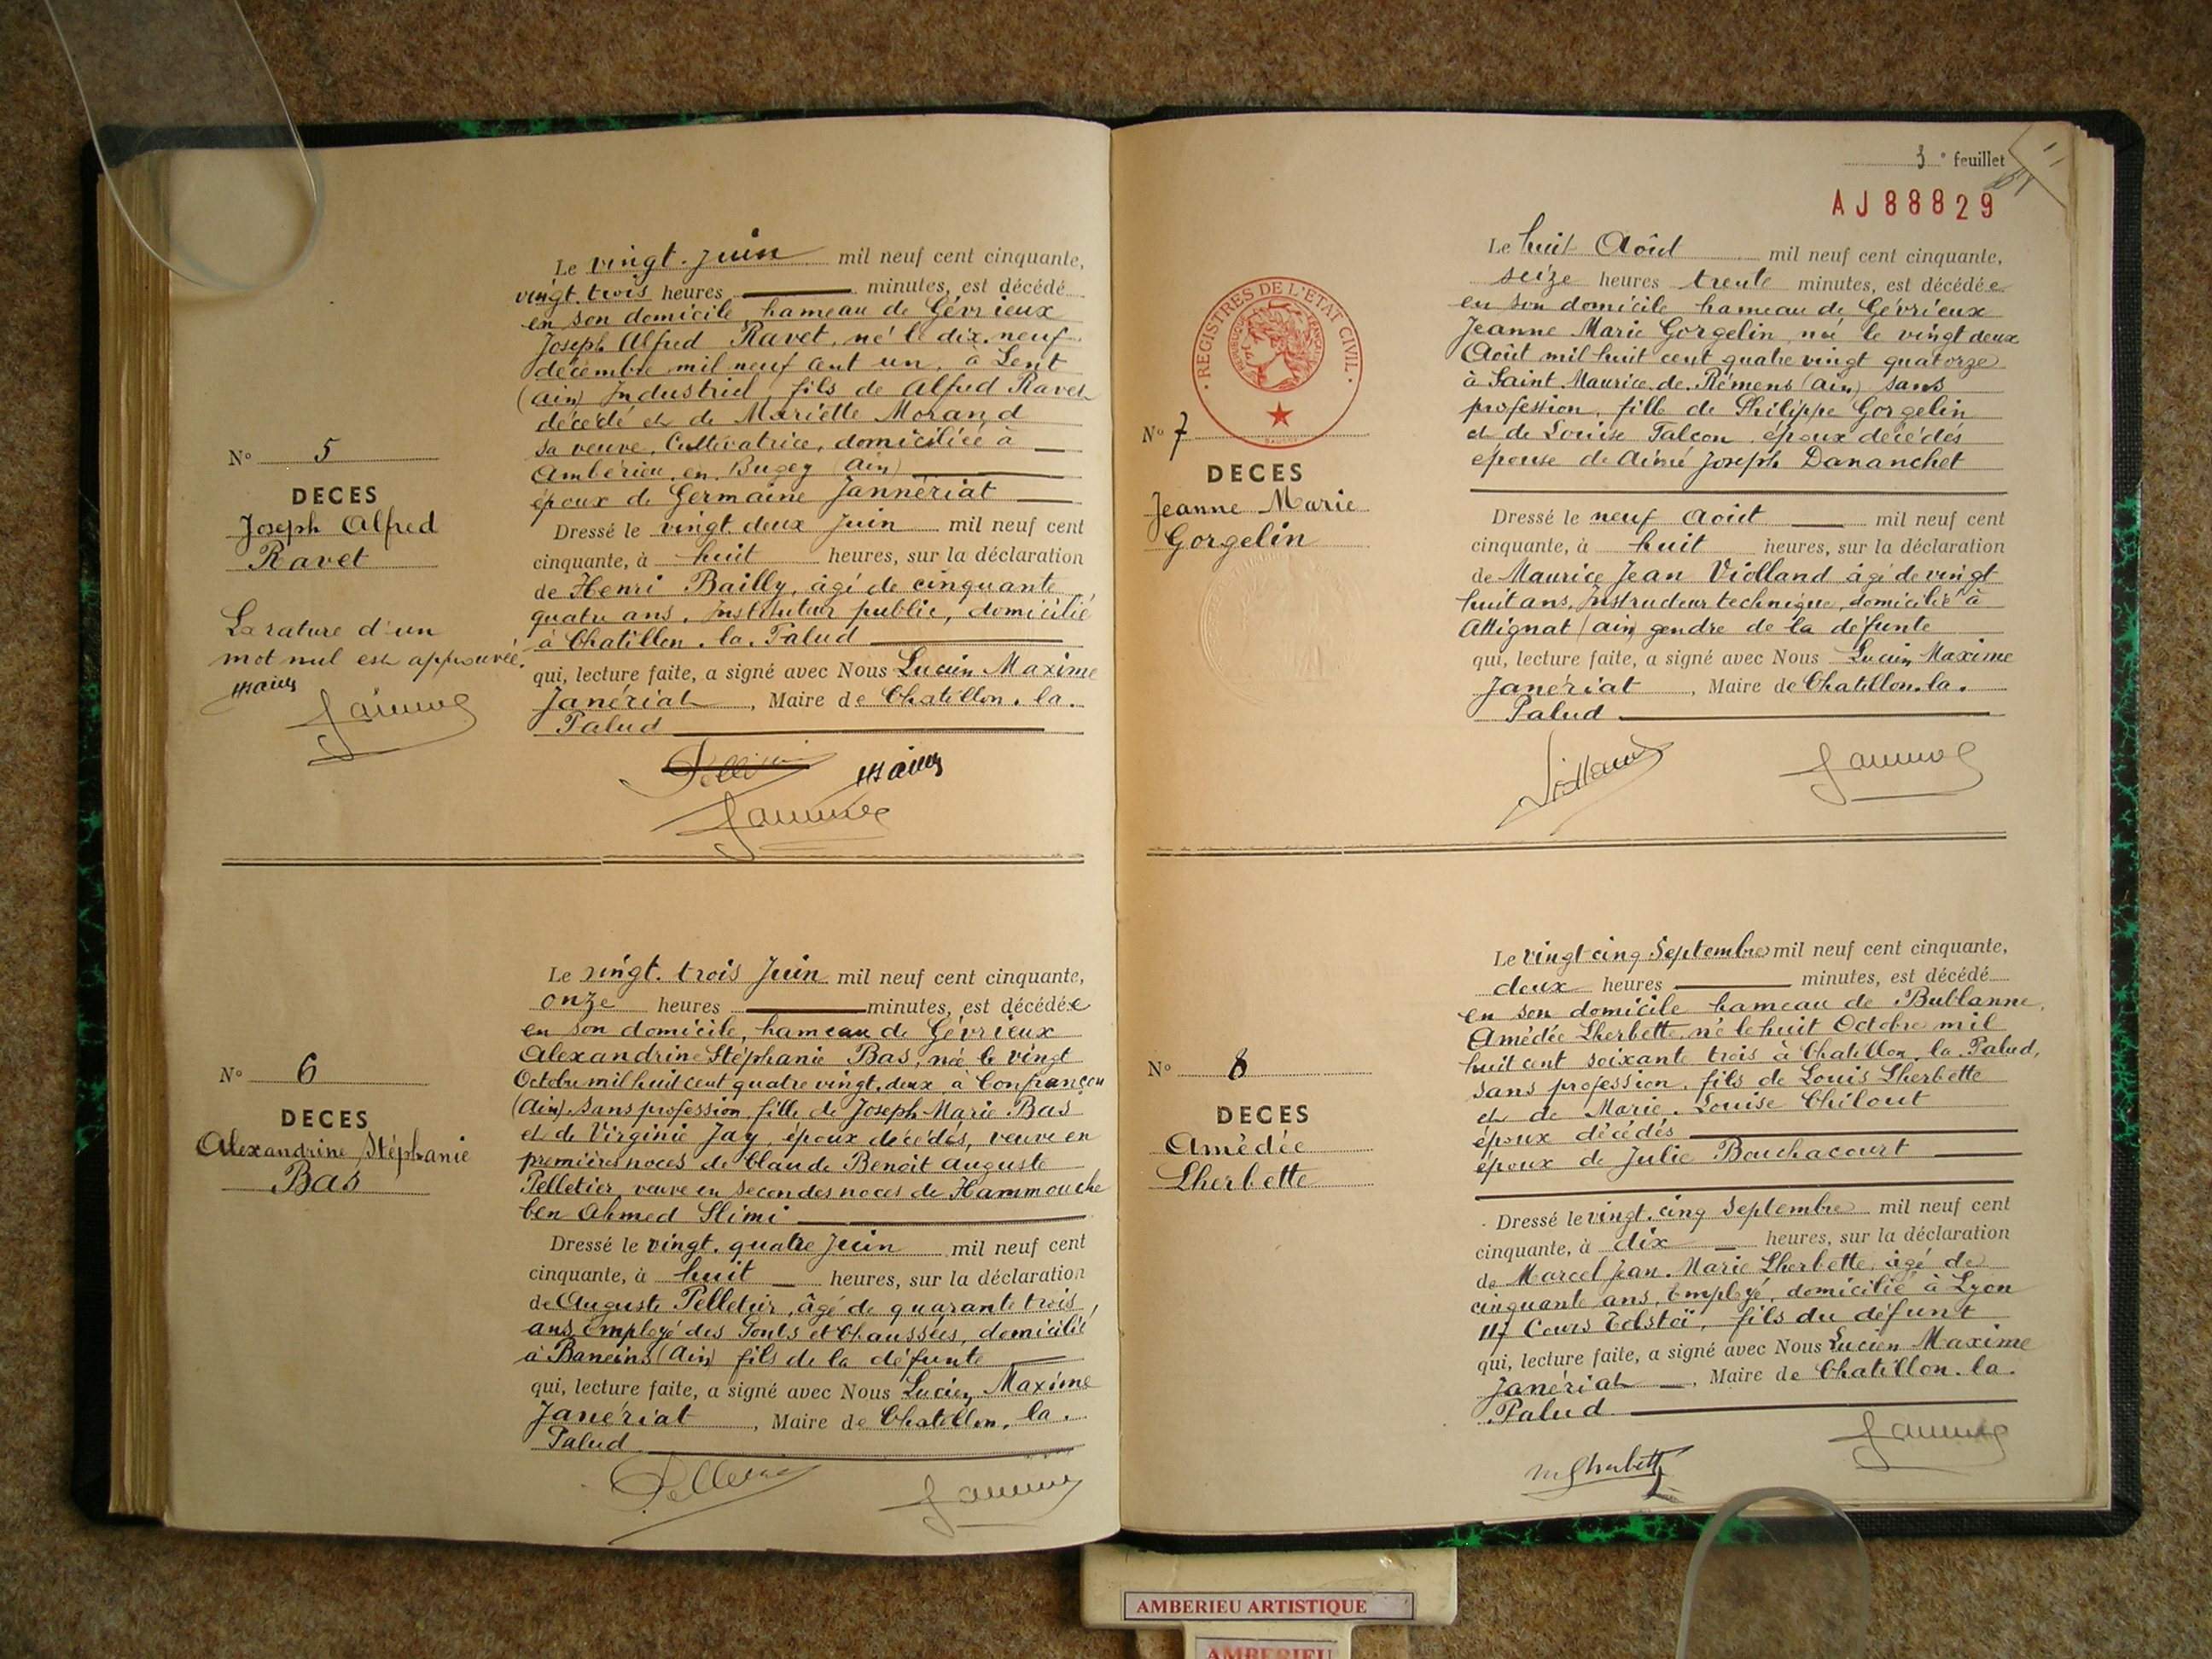 Le vingt. Juin mil neuf cent cinquante,
vingt. trois heures minutes, est décédé
en son domicile, hameau de Gévrieux
Joseph Alfred Ravet, né le dix. neuf
décembre mil neuf cent un, à Lent
(Ain) Industriel, fils de Alfred Ravet
décédé et de Mariette Morand
sa veuve, Cultivatrice, domiciliée à
Ambérieu. en. Bugey (Ain)
époux de Germaine Jannériat
N° 5
DECES
Joseph Alfred
Ravet
La rature d'un
mot nul est approuvée.
Dressé le vingt. deux Juin mil neuf cent
cinquante, à huit heures, sur la déclaration
de Henri Bailly, âgé de cinquante
quatre ans, instituteur public, domicilié
à Chatillon. la. Palud
qui, lecture faite, a signé avec Nous Lucien Maxime
Janériat, Maire de Chatillon. la.
Palud
Le vingt. trois Juin mil neuf cent cinquante,
onze heures minutes, est décédée
en son domicile, hameau de Gévrieux
Alexandrine Stéphanie Bas, née le vingt
Octobre mil huit cent quatre vingt. deux à Confrançon
(Ain). Sans profession, fille de Joseph Marie Bas
et de Virginie Jay, époux décédés, veuve en
premières noces de Claude Benoit Auguste
Pelletier, veuve en secondes noces de Hammouche
ben Ahmed Slimi
N° 6
DECES
Alexandrine Stéphanie
Bas
Dressé le vingt. quatre Juin mil neuf cent
cinquante, à huit heures, sur la déclaration
de Auguste Pelletier, âgé de quarante trois
ans, Employé des Ponts et Chaussées, domicilié
à Baneins (Ain) fils de la défunte
qui, lecture faite, a signé avec Nous Lucien Maxime
Janériat, Maire de Chatillon. la.
Palud
3e feuillet
AJ88829
Le huit Août mil neuf cent cinquante,
seize heures trente minutes, est décédée
en son domicile hameau de Gévrieux
Jeanne Marie Gorgelin, née le vingt deux
Août mil huit cent quatre vingt quatorze
à Saint. Maurice. de. Rémens (Ain) sans
profession, fille de Philippe Gorgelin
et de Louise Falcon, époux décédés
épouse de Aimé Joseph Dananchet
REGISTRES DE L'ETAT CIVIL
N° 7
DECES
Jeanne Marie
Gorgelin
Dressé le neuf Août mil neuf cent
cinquante, à huit heures, sur la déclaration
de Maurice Jean Violland âgé de vingt
huit ans, Instructeur technique, domicilié à
Attignat (Ain) gendre de la défunte
qui, lecture faite, a signé avec Nous Lucien Maxime
Janériat, Maire de Chatillon. la.
Palud
Le vingt cinq Septembre mil neuf cent cinquante,
deux heures minutes, est décédé
en son domicile hameau de Bublanne,
Amédée Lherbette, né le huit Octobre mil
huit cent soixante trois à Chatillon. la. Palud,
sans profession, fils de Louis Lherbette
et de Marie. Louise Chilout
époux décédés
époux de Julie Bouchacourt
N° 8
DECES
Amédée
Lherbette
Dressé le vingt. cinq Septembre mil neuf cent
cinquante, à dix heures, sur la déclaration
de Marcel Jean. Marie Lherbette, âgé de
cinquante ans, Employé, domicilié à Lyon
117 Cours Tolstoï, fils du défunt
qui, lecture faite, a signé avec Nous Lucien Maxime
Janériat, Maire de Chatillon. la.
Palud
AMBERIEU ARTISTIQUE
AMBERIEU